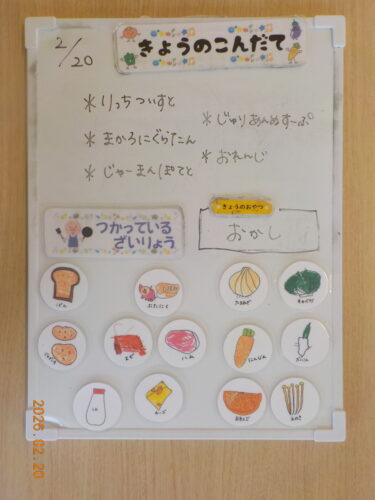 2/20
きょうのこんだて
*りっちついすと
*まかろにぐらたん
*じゃーまんぽてと
*じゅりあんぬすーぷ
*おれんじ
つかっている
ざいりょう
きょうのおやつ
おかし
ぱん
ぶたにく
たまねぎ
きゃべつ
じゃがいも
えび
はむ
にんじん
だいこん
チーズ
おれんじ
えのき
2026.02.20